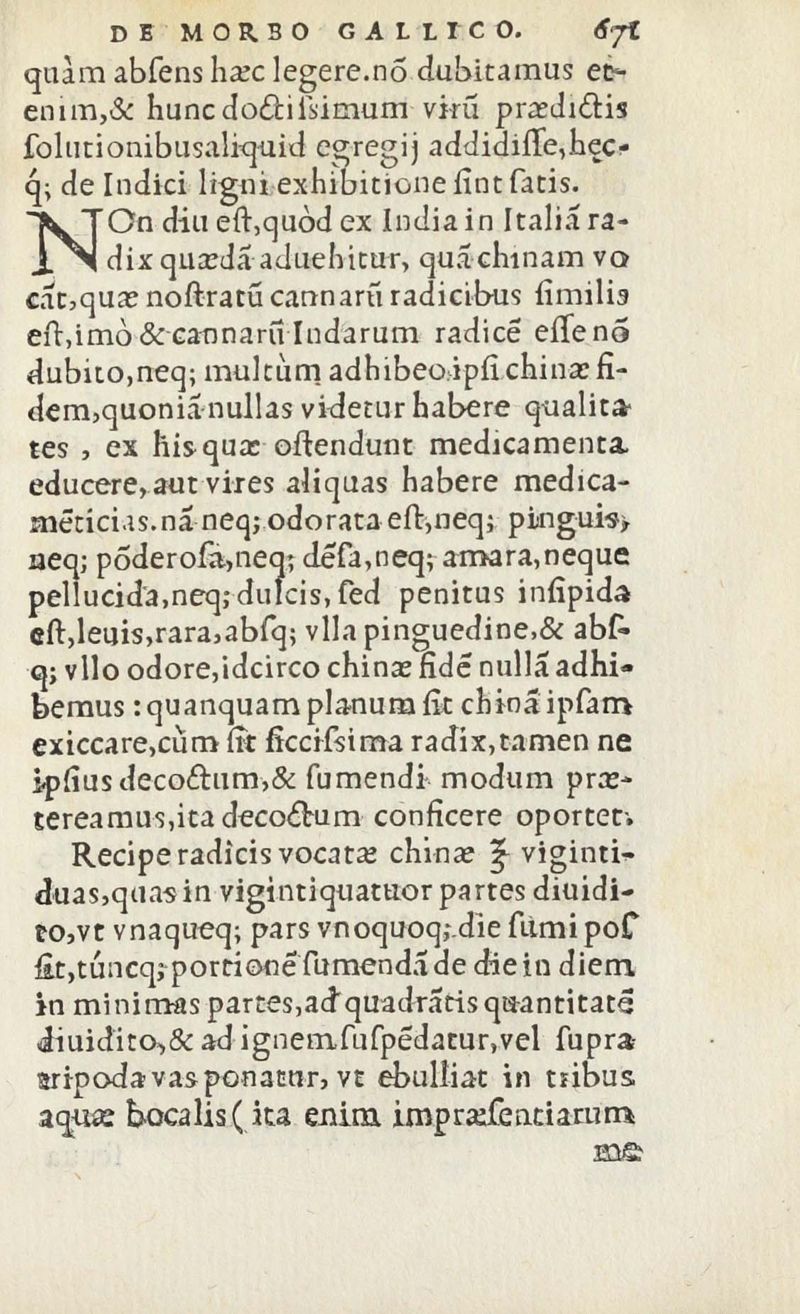 DE MORBO GALLICO. 671
quàm absens hæc legere.nõ dubitamus et-
enim,& hunc doctissimum virũ prædictis
solutionibusaliquid egregij addidisse,hęc-
q́; de Indici ligni exhibitione sint satis.
NOn diu est,quòd ex India in Italiã ra-
dix quædã aduehitur, quã chinam vo
cãt,quæ nostratũ cannarũ radicibus similis
est,imò & cannarũ Indarum radicẽ esse nõ
dubito,neq; multùm adhibeo ipsi chinæ fi-
dem,quoniã nullas videtur habere qualita
tes , ex his quæ ostendunt medicamenta
educere, aut vires aliquas habere medica-
mẽticias.nã neq; odorata est,neq; pinguis,
neq; põderosa,neq; dẽsa,neq; amara,neque
pellucida,neq; dulcis, sed penitus insipida
est,leuis,rara,absq; vlla pinguedine,& abs-
q; vllo odore,idcirco chinæ fidẽ nullã adhi-
bemus : quanquam planum sit chinã ipsam
exiccare,cùm sit siccissima radix,tamen ne
ipsius decoctum,& sumendi modum præ-
tereamus,ita decoctum conficere oportet.
Recipe radicis vocatæ chinæ ℥ viginti-
duas,quas in vigintiquatuor partes diuidi-
to,vt vnaqueq; pars vnoquoq; die sumi pos
sit,túncq; portionẽ sumendã de die in diem
in minimas partes,ad quadrãtis quantitatẽ
diuidito,& ad ignem suspẽdatur,vel supra
tripoda vas ponatur, vt ebulliat in tribus
aquæ bocalis ( ita enim impræsentiarum
me